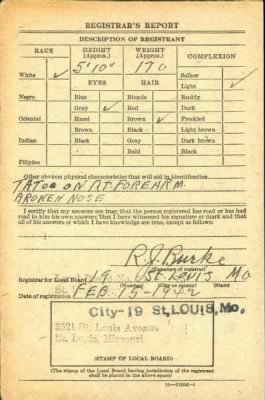 REGISTRAR'S REPORT
DESCRIPTION OF REGISTRANT
RACE HEIGHT (Approx.) WEIGHT (Approx.) COMPLEXION
5'10" 170
White ✓ Sallow
EYES HAIR Light ✓
Negro Blue Blonde Ruddy
Gray ✓ Red Dark
Oriental Hazel Brown ✓ Freckled
Brown Black Light brown
Indian Black Gray Dark brown
Bald Black
Filipino
Other obvious physical characteristics that will aid in identification
TATOO ON RT. FOREARM
BROKEN NOSE
I certify that my answers are true; that the person registered has read or has had
read to him his own answers; that I have witnessed his signature or mark and that
all of his answers of which I have knowledge are true, except as follows:
R. J. Burke
(Signature of registrar)
Registrar for Local Board 19 ST. LOUIS MO
(Number) (City or county) (State)
Date of registration FEB. 15-1942
City-19 St. LOUIS, Mo.
St. Louis Avenue
St. Louis, Missouri
(STAMP OF LOCAL BOARD)
(The stamp of the Local Board having jurisdiction of the registrant
shall be placed in the above space)